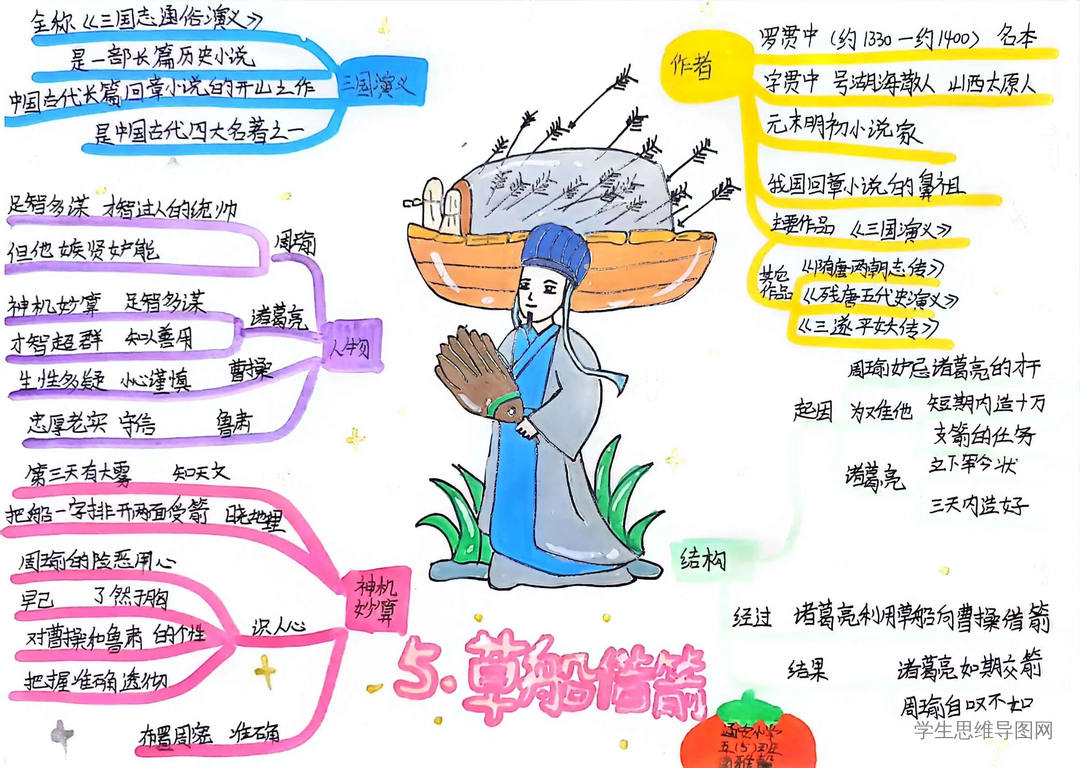 全称《三国志通俗演义》
是一部长篇历史小说
中国古代长篇回章小说的开山之作
是中国古代四大名著之一
三国演义
作者
罗贯中（约1330一约1400） 名本
字贯中 号湖海散人 山西太原人
元末明初小说家
我国回章小说的鼻祖
主要作品 《三国演义》
其它作品
《隋唐两朝志传》
《残唐五代史演义》
《三遂平妖大传》
足智多谋 才智过人的统帅
但他嫉贤妒能
周瑜
神机妙算 足智多谋
才智超群 知人善用
诸葛亮
生性多疑 小心谨慎 曹操
忠厚老实 守信 鲁肃
人物
第三天有大雾 知天文
把船一字排开两面受箭 晓地理
周瑜的险恶用心
早已 了然于胸
对曹操和鲁肃 的个性
把握准确透彻
识人心
布置周密 准确
神机
妙算
5.草船借箭
结构
起因
周瑜妒忌诸葛亮的才干
为难他 短期内造十万
支箭的任务
诸葛亮
立下军令状
三天内造好
经过 诸葛亮利用草船向曹操借箭
结果 诸葛亮如期交箭
周瑜自叹不如
五（5）班
学生思维导图网